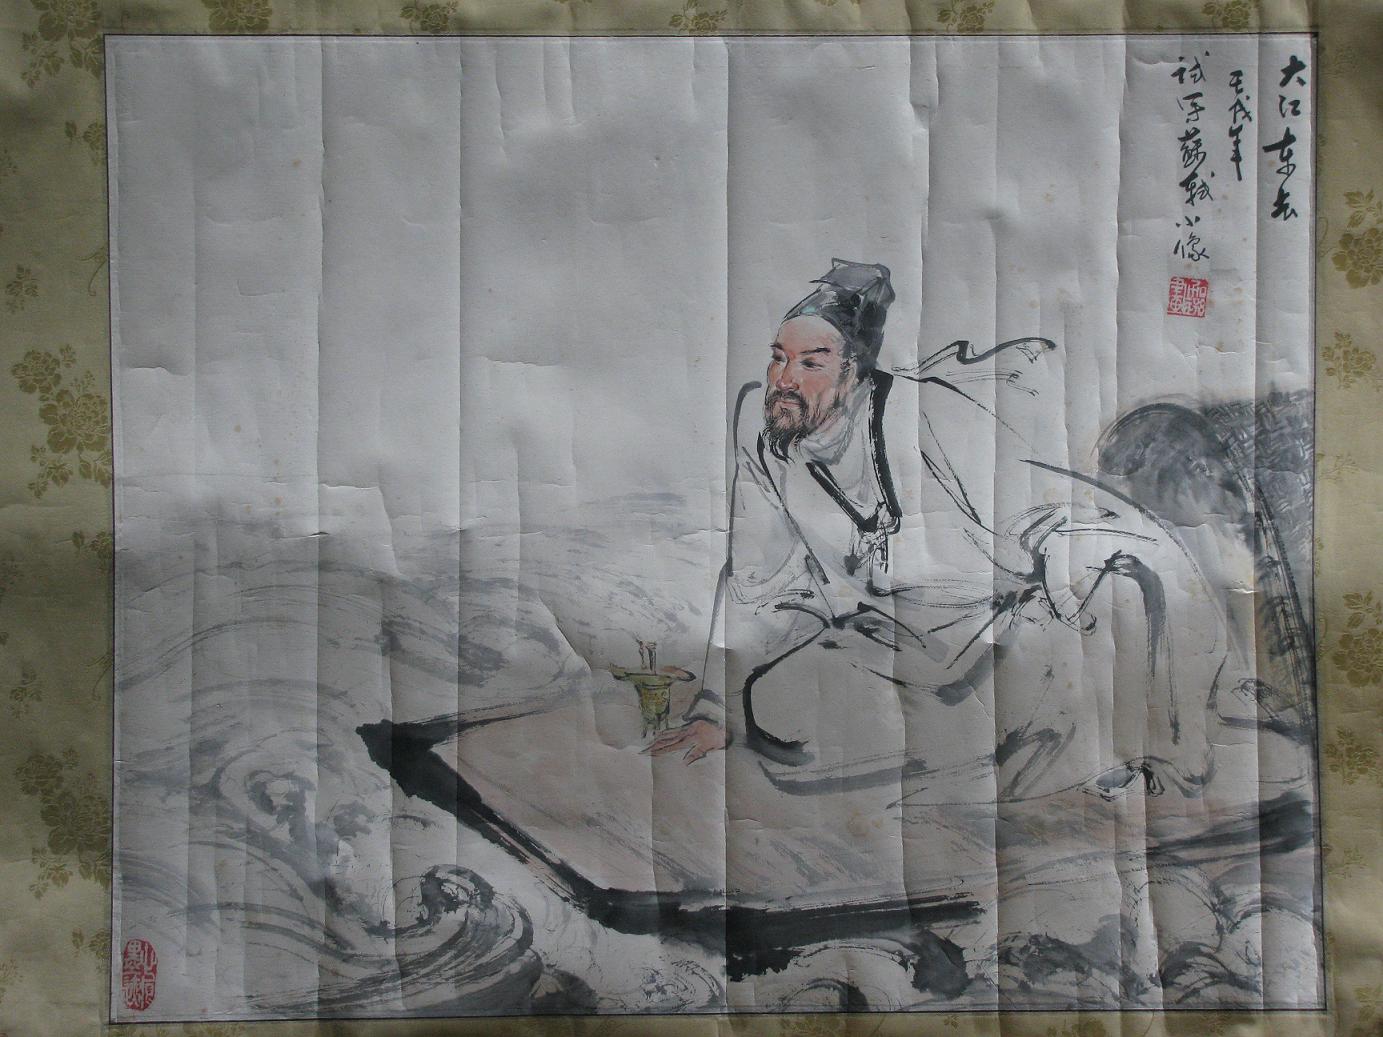 大江东去
壬戌年
试写苏轼小像